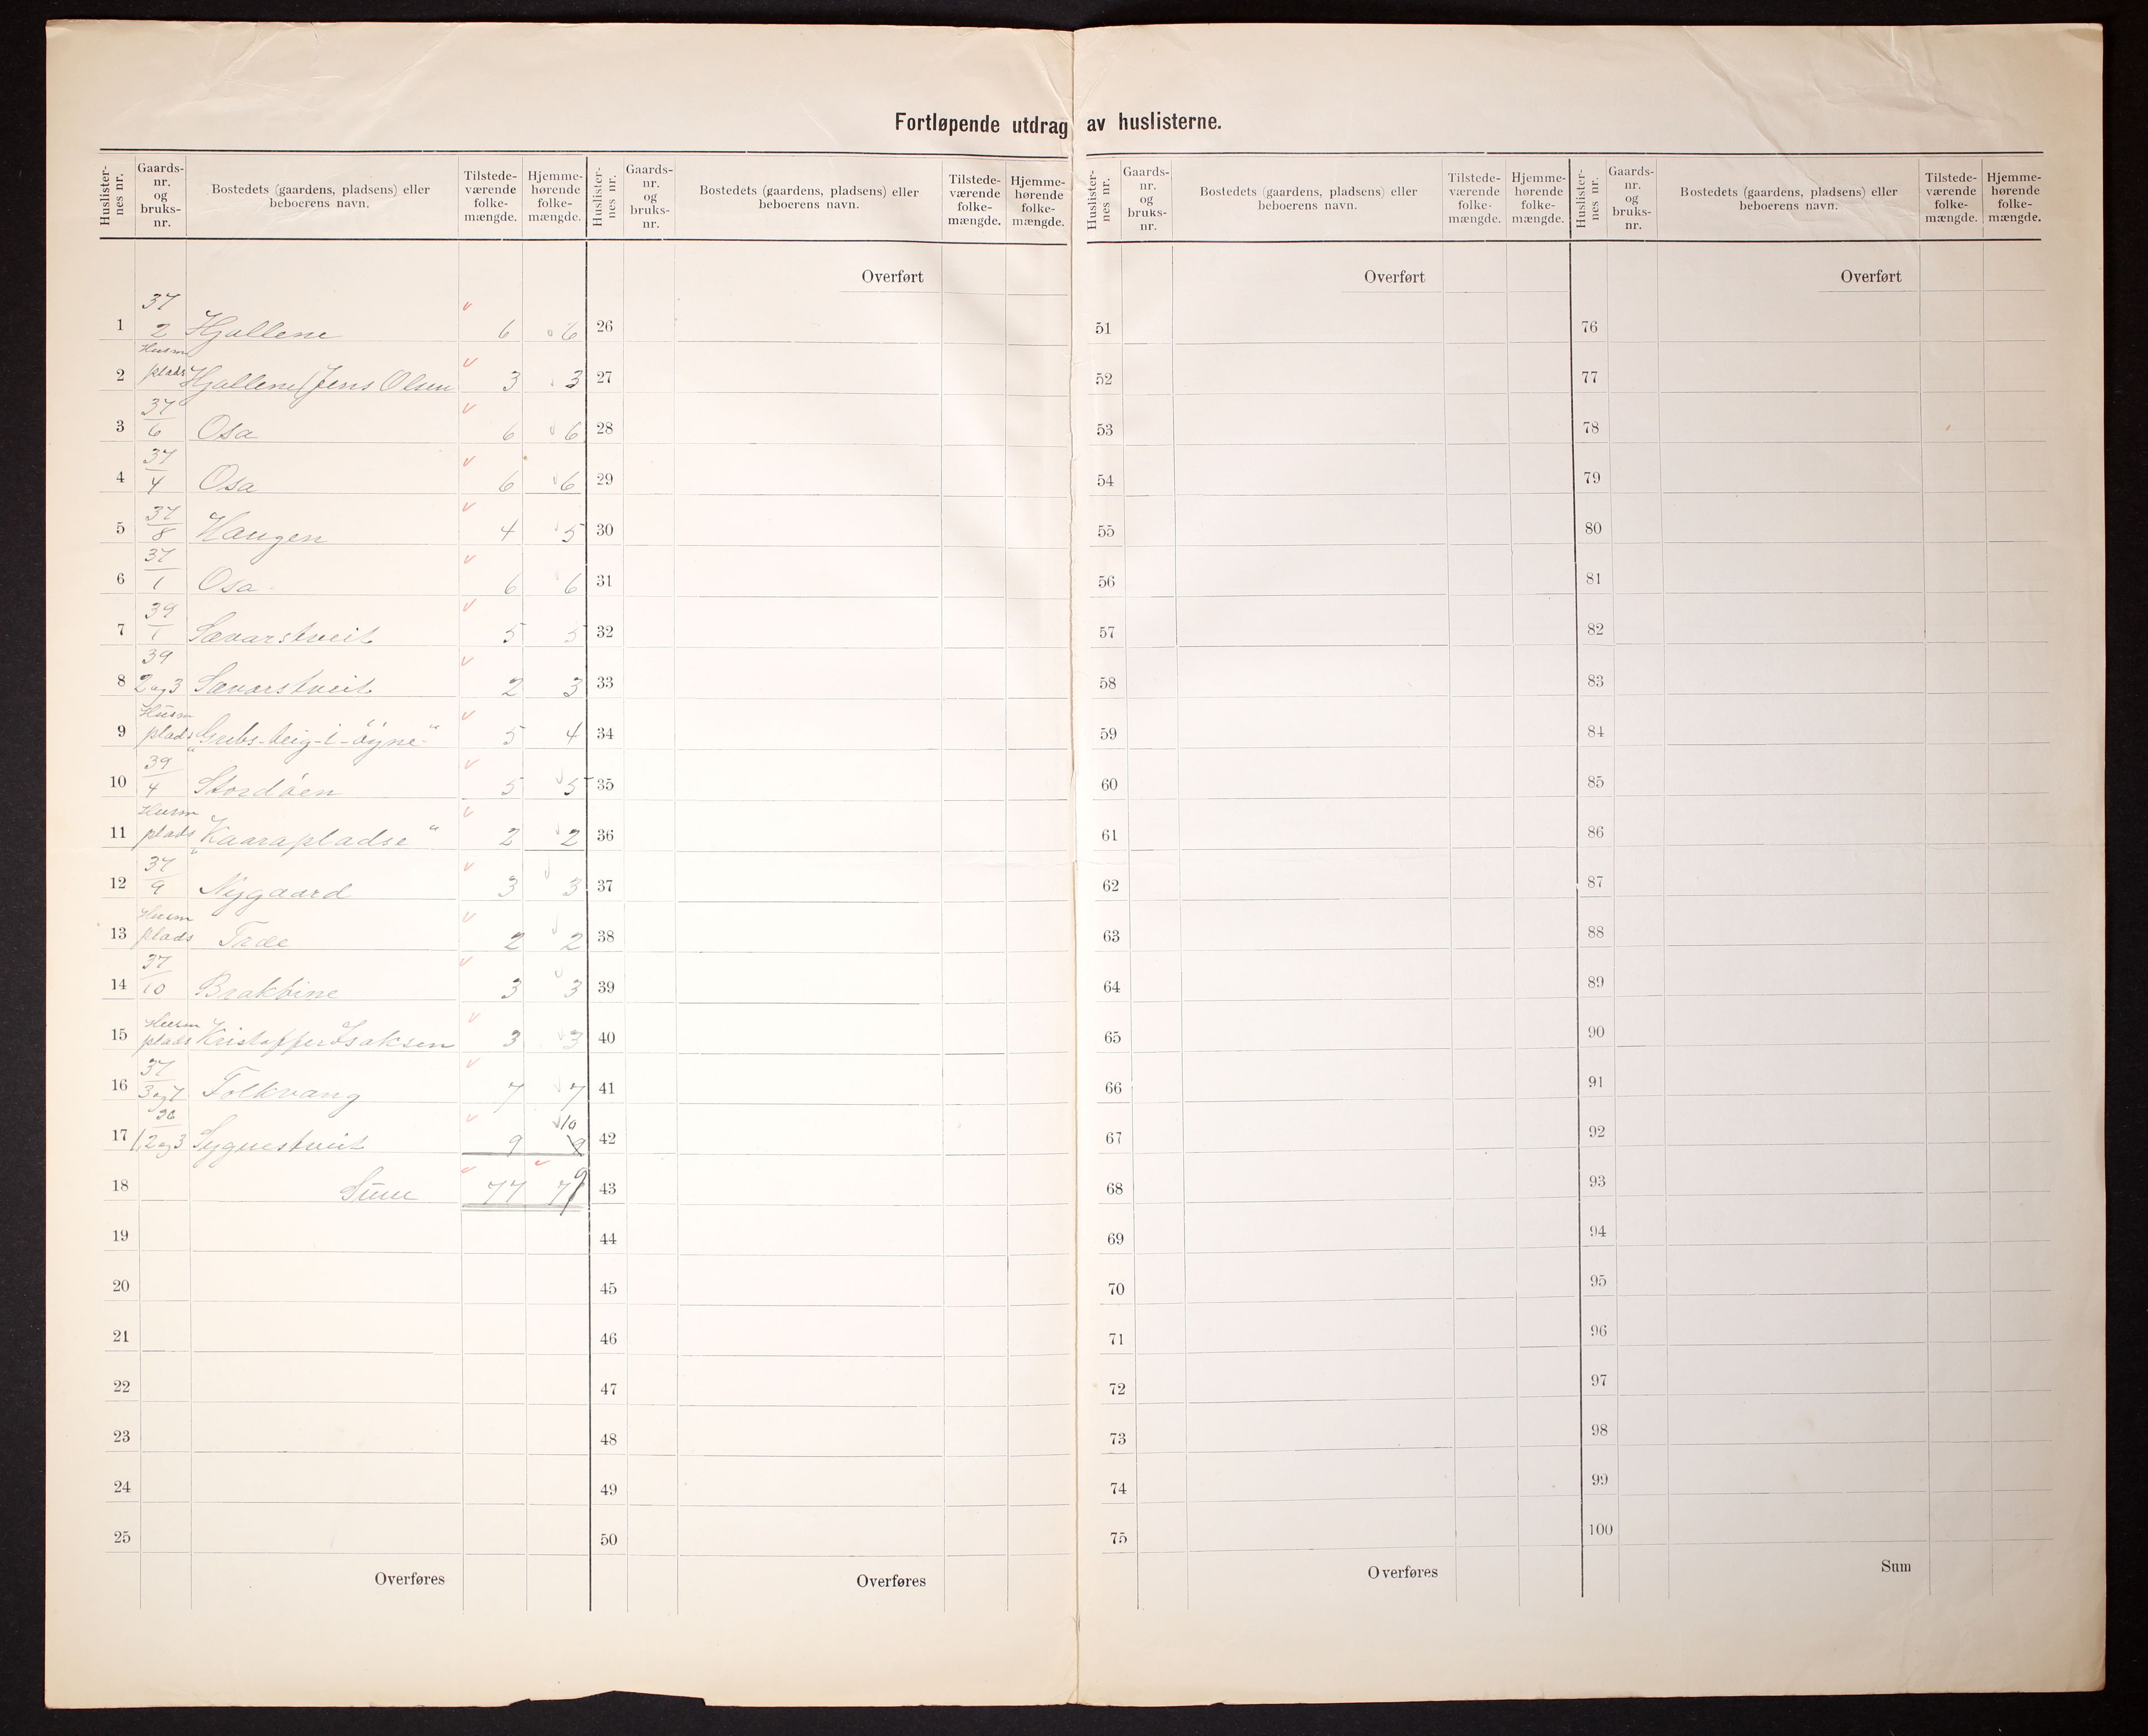 Fortløpende utdrag av huslisterne.
Huslister-nes nr. Gaards-nr. og bruks-nr. Bostedets (gaardens, pladsens) eller beboerens navn. Tilstede-værende folke-mængde. Hjemme-hørende folke-mængde.
Huslister-nes nr. Gaards-nr. og bruks-nr. Bostedets (gaardens, pladsens) eller beboerens navn. Tilstede-værende folke-mængde. Hjemme-hørende folke-mængde.
Huslister-nes nr. Gaards-nr. og bruks-nr. Bostedets (gaardens, pladsens) eller beboerens navn. Tilstede-værende folke-mængde. Hjemme-hørende folke-mængde.
Huslister-nes nr. Gaards-nr. og bruks-nr. Bostedets (gaardens, pladsens) eller beboerens navn. Tilstede-værende folke-mængde. Hjemme-hørende folke-mængde.
Overført Overført Overført
1 37/2 Hjallene 6 6 26 51 76
2 Husm plads Hjallene (Jens Olsen 3 3 27 52 77
3 37/6 Osa 6 6 28 53 78
4 37/4 Osa 6 6 29 54 79
5 37/8 Haugen 4 5 30 55 80
6 37/1 Osa 6 6 31 56 81
7 39/1 Sævarstveit 5 5 32 57 82
8 39 2og3 Sævarstveit 2 3 33 58 83
9 Husm plads 5 4 34 59 84
10 39/4 Stordöen 5 5 35 60 85
11 Husm plads „Kaarapladse“ 2 2 36 61 86
12 37/9 Nygaard 3 3 37 62 87
13 Husm plads Træe 2 2 38 63 88
14 37/10 3 3 39 64 89
15 Husm plads Kristoffer Isaksen 3 3 40 65 90
16 37/3og7 Folkvang 7 7 41 66 91
17 36/1,2og3 Sygnestveit 9 9 10 42 67 92
18 Sum 77 79 43 68 93
19 44 69 94
20 45 70 95
21 46 71 96
22 47 72 97
23 48 73 98
24 49 74 99
25 50 75 100
Overføres Overføres Overføres Sum